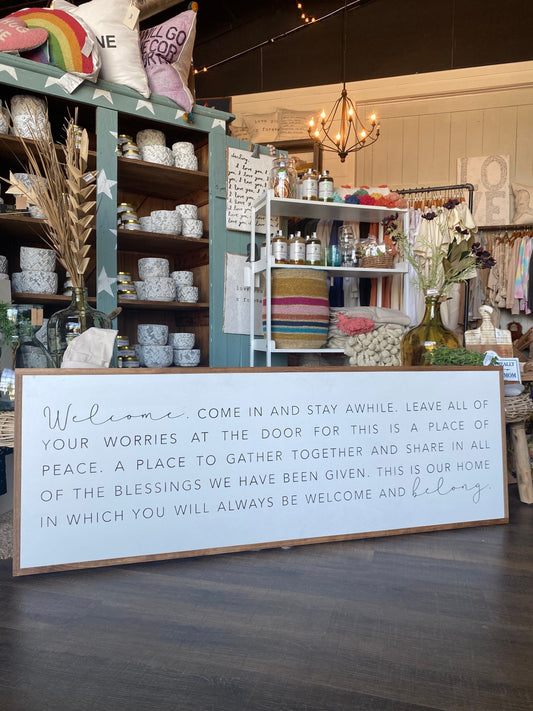 NE
WILL GO
DECOR
darling,
I love you.
I love you.
forever
LOVE
Welcome. COME IN AND STAY AWHILE. LEAVE ALL OF
YOUR WORRIES AT THE DOOR FOR THIS IS A PLACE OF
PEACE. A PLACE TO GATHER TOGETHER AND SHARE IN ALL
OF THE BLESSINGS WE HAVE BEEN GIVEN. THIS IS OUR HOME
IN WHICH YOU WILL ALWAYS BE WELCOME AND belong.
MOM